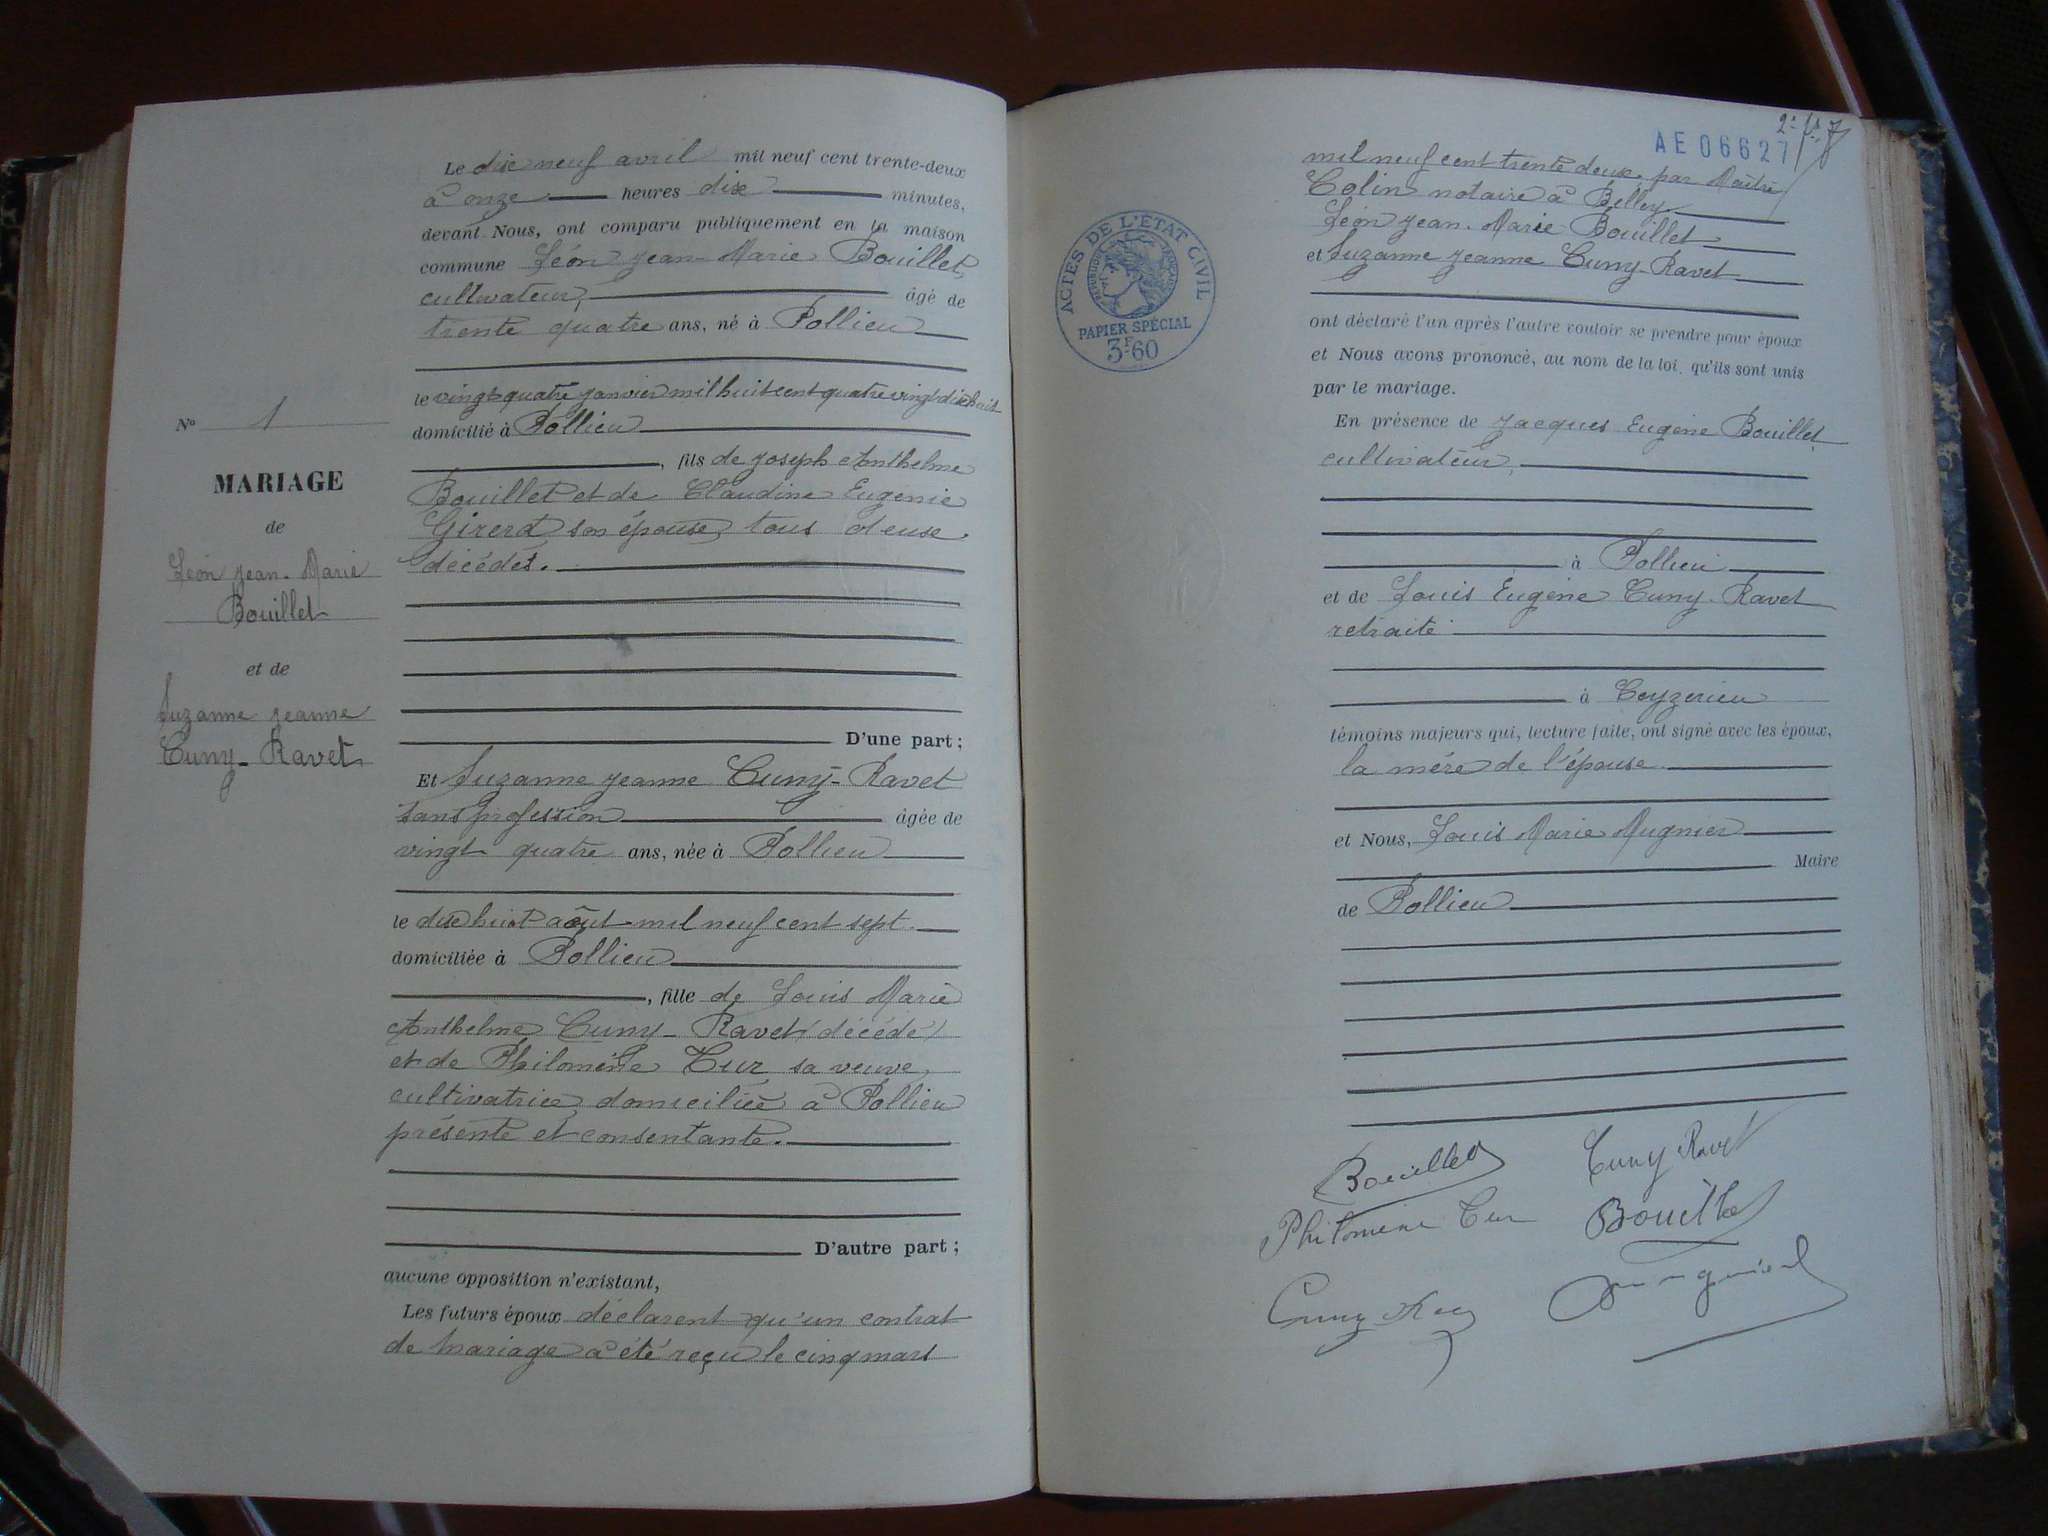 Le dix neuf avril mil neuf cent trente-deux
à onze heures dix minutes,
devant Nous, ont comparu publiquement en la maison
commune Léon Jean-Marie Bouillet,
cultivateur, âgé de
trente quatre ans, né à Pollieu
le vingt quatre janvier mil huit cent quatre vingt dix huit
domicilié à Pollieu
, fils de Joseph Anthelme
Bouillet et de Claudine Eugénie
Girerd son épouse, tous deux
décédés.
D'une part ;
Nº 1
MARIAGE
de
Léon Jean-Marie
Bouillet
et de
Suzanne Jeanne
Cuny-Ravet
Et Suzanne Jeanne Cuny-Ravet
sans profession âgée de
vingt quatre ans, née à Pollieu
le dix huit août mil neuf cent sept.
domiciliée à Pollieu
, fille de Louis Marie
Anthelme Cuny-Ravet (décédé)
et de Philomène Cuz sa veuve,
cultivatrice domiciliée à Pollieu
présente et consentante.
D'autre part ;
aucune opposition n'existant,
Les futurs époux déclarent qu'un contrat
de mariage a été reçu le cinq mars
AE 06627
mil neuf cent trente deux par Maître
Colin notaire à Belley
Léon Jean-Marie Bouillet
et Suzanne Jeanne Cuny-Ravet
ACTES DE L'ÉTAT CIVIL
RÉPUBLIQUE FRANÇAISE
PAPIER SPÉCIAL
3F.60
ont déclaré l'un après l'autre vouloir se prendre pour époux
et Nous avons prononcé, au nom de la loi, qu'ils sont unis
par le mariage.
En présence de Jacques Eugène Bouillet
cultivateur,
à Pollieu
et de Louis Eugène Cuny-Ravet
retraité
à Ceyzerieu
témoins majeurs qui, lecture faite, ont signé avec les époux,
la mère de l'épouse
et Nous, Louis Marie Mugnier
Maire
de Pollieu
Bouillet Cuny Ravet
Philomène Bouillet
Cuny